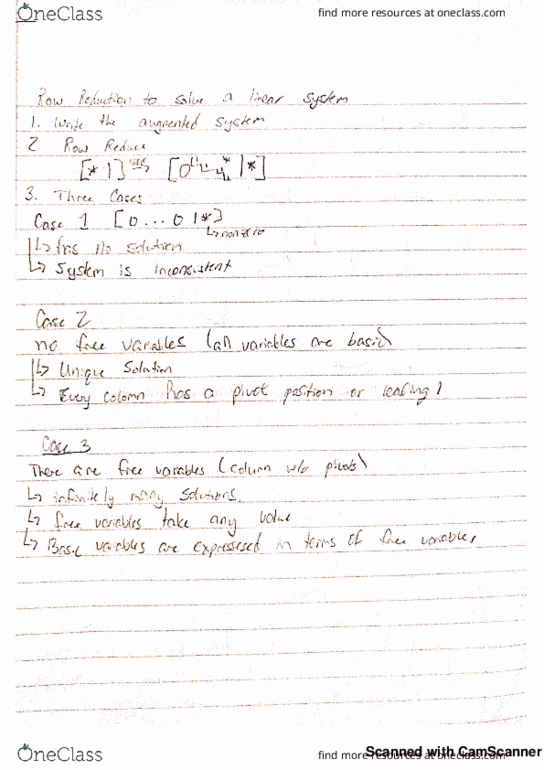 OneClass
find more resources at oneclass.com
Row Reduction to solve a linear system
1. Write the augmented system
2 Row Reduce
[* | ] → [0 * | *]
3. Three Cases
Case 1 [0 ... 0 | *]
↳ non zero
↳ has no solution
↳ System is inconsistent
Case 2
no free variables (all variables are basic)
↳ Unique Solution
↳ Every column has a pivot position or leading 1
Case 3
There are free variables (column w/o pivots)
↳ infinitely many solutions.
↳ free variables take any value
↳ Basic variables are expressesed in terms of free variables
OneClass
find more resources at oneclass.com
Scanned with CamScanner